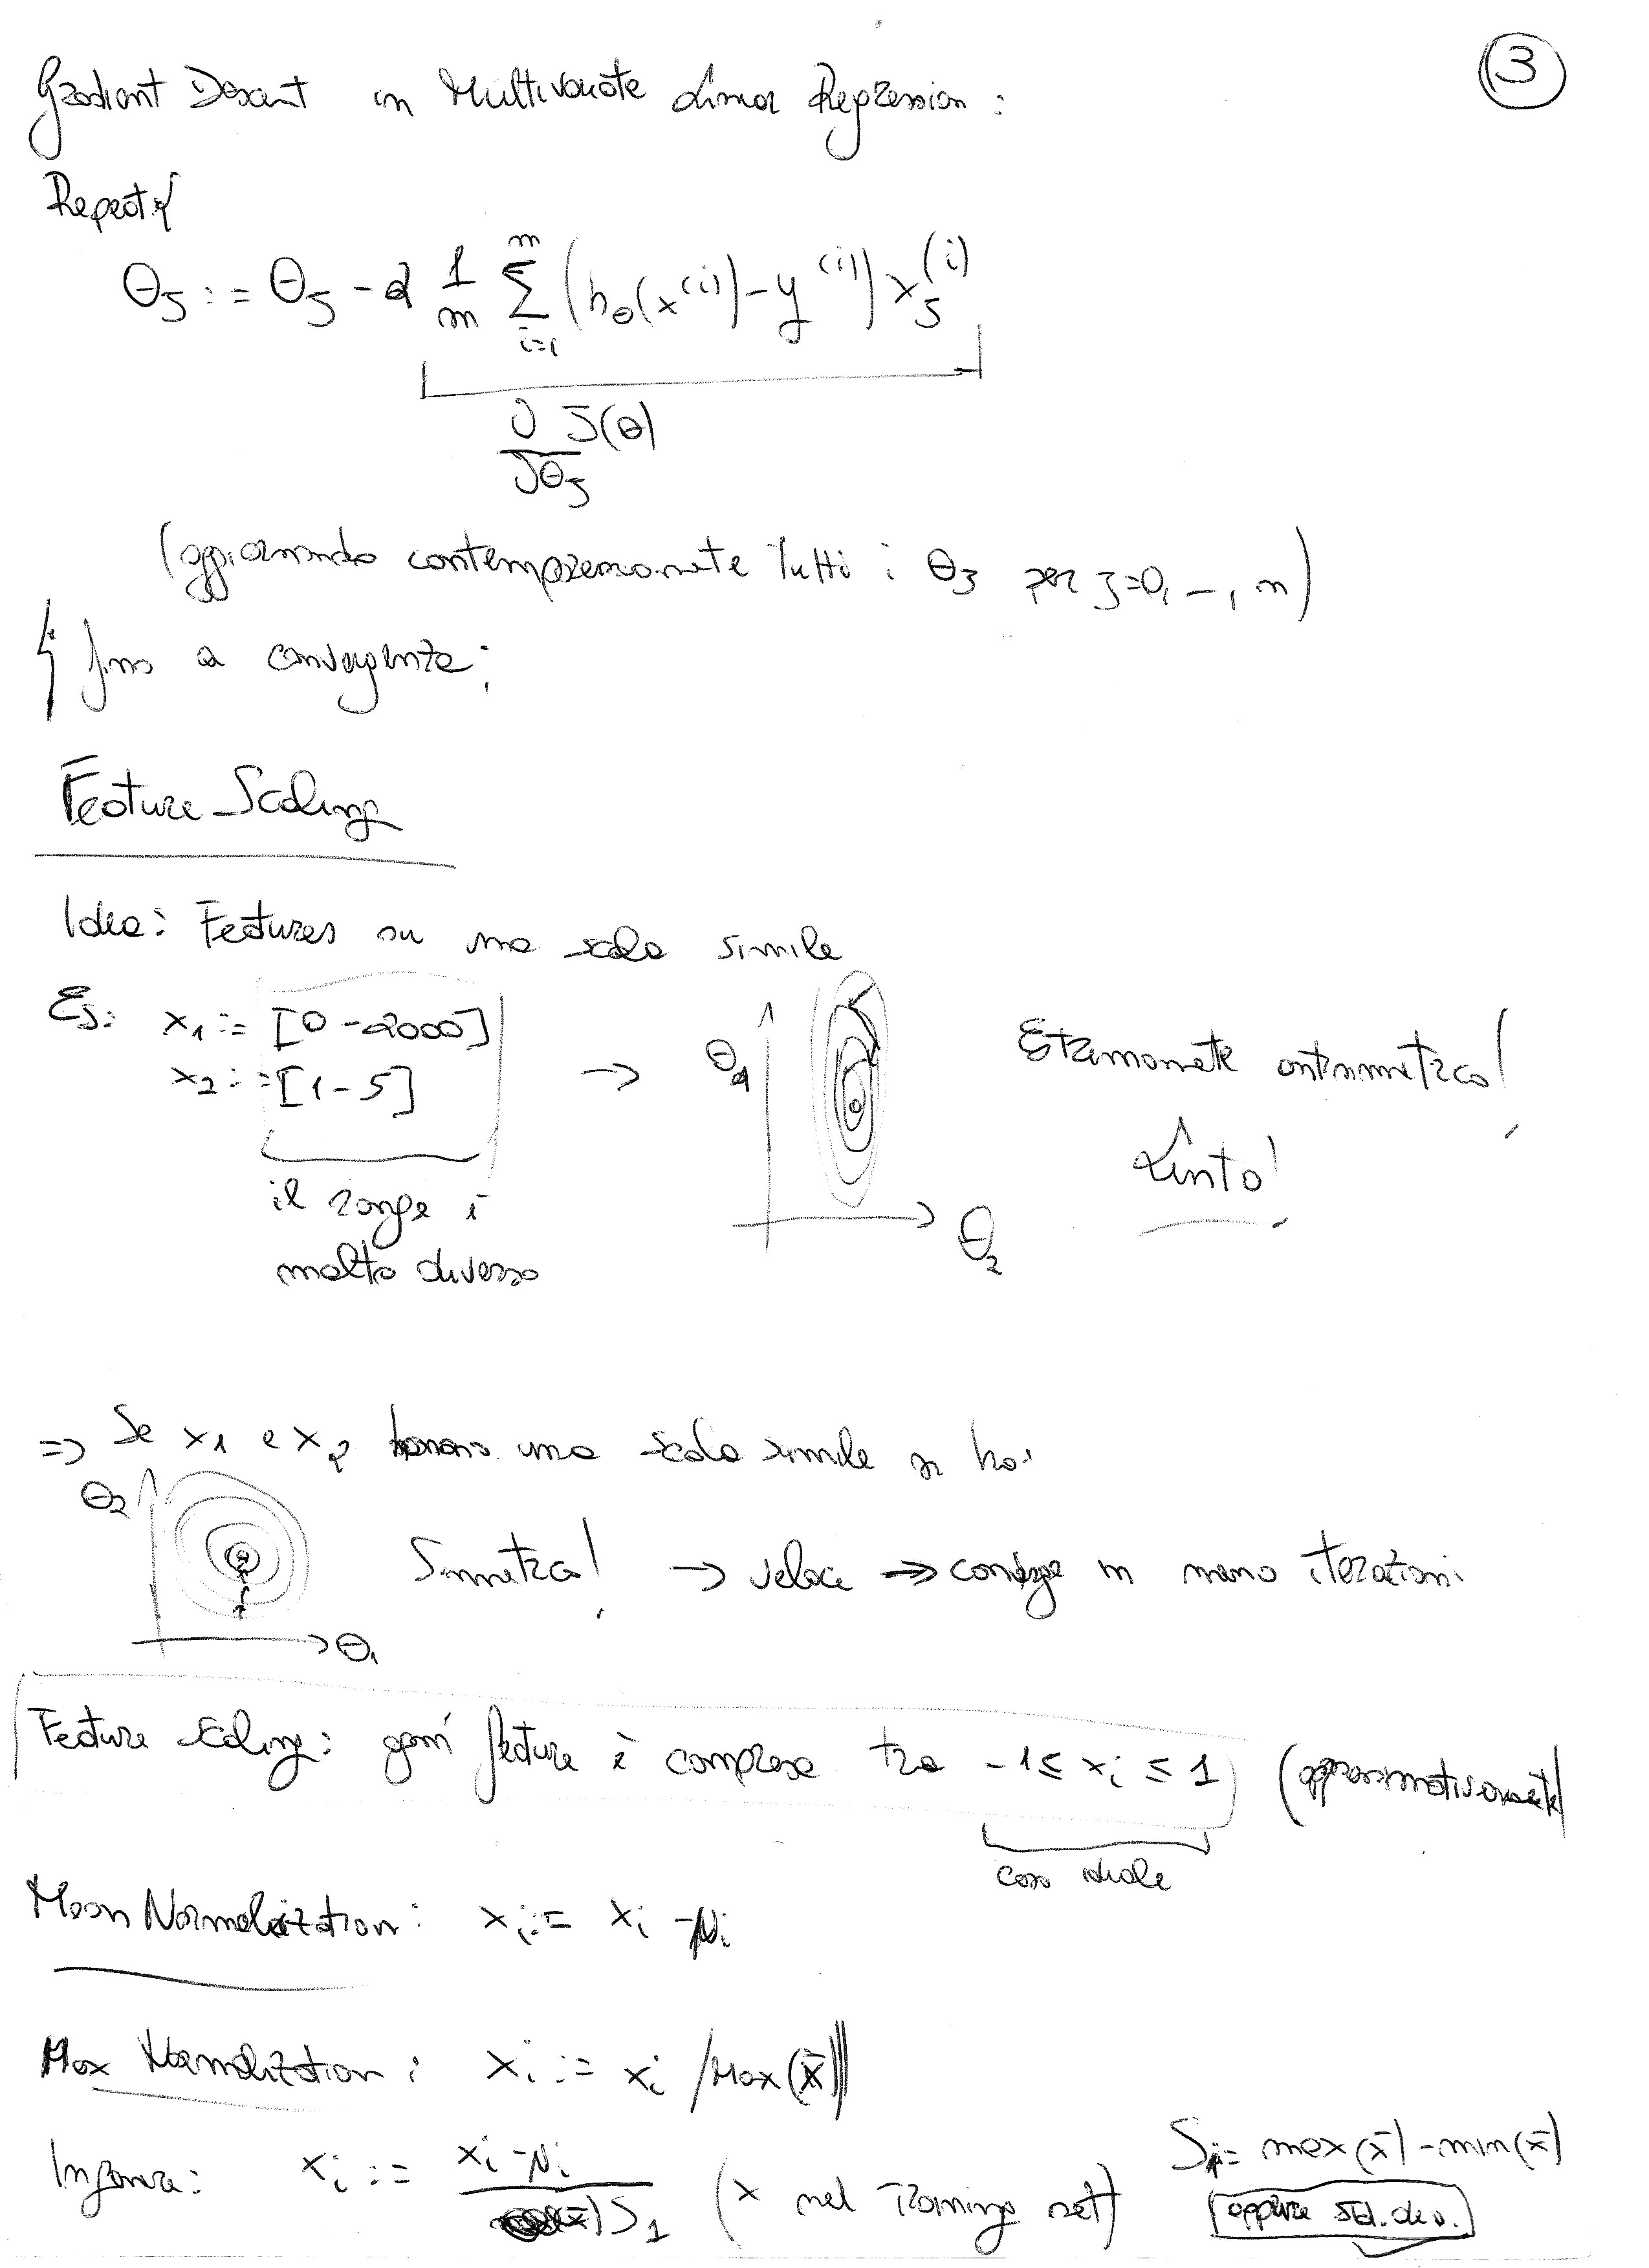 ③
Gradient Descent in Multivariate Linear Regression :
Repeat {
θj := θj - α 1/m Σ_{i=1}^{m} (hθ(x^(i)) - y^(i)) xj^(i)
∂/∂θj J(θ)
(aggiornando contemporaneamente tutti i θj per j=0, –, n)
} fino a convergenza;
Feature Scaling
Idea: Features su una scala simile
Es: x1 := [0 - 2000]
x2 := [1 - 5]
il range è
molto diverso
→
θ1
θ2
Estremamente antisimmetrico!
Lento!
⇒ Se x1 e x2 hanno una scala simile si ha:
θ2
θ1
Simmetrico! → veloce ⇒ converge in meno iterazioni
Feature scaling: ogni feature è compresa tra -1 ≤ xi ≤ 1 (approssimativamente)
caso ideale
Mean Normalization : xi := xi - μi
Max Normalization : xi := xi / Max(x̄)
In genere: xi := (xi - μi) / S1 (x nel Training set) Si = max(x̄) - min(x̄)
oppure std. dev.